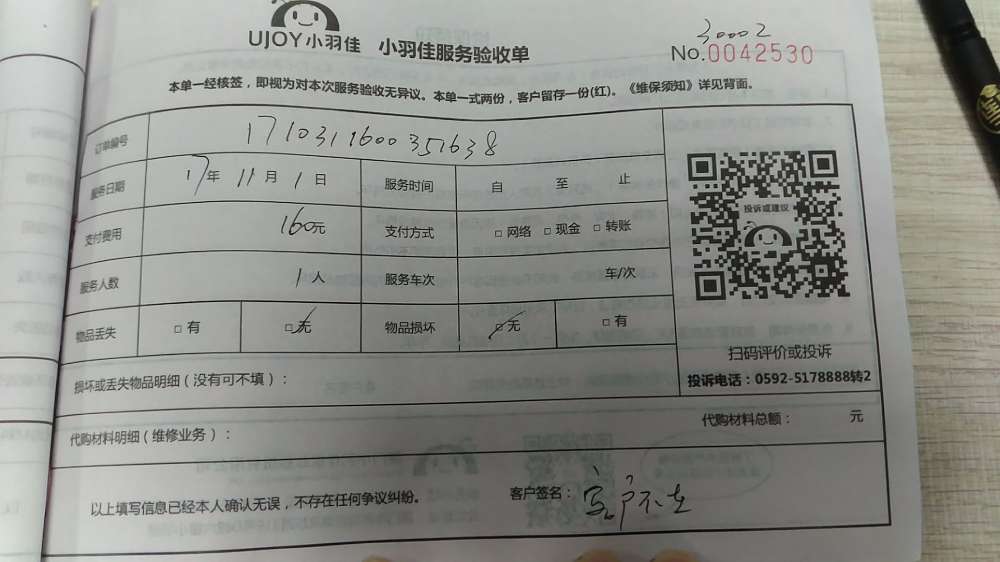 30002
UJOY小羽佳 小羽佳服务验收单 No.0042530
本单一经核签，即视为对本次服务验收无异议。本单一式两份，客户留存一份(红)。《维保须知》详见背面。
订单编号 1710311600351638
服务日期 17年 11月 1日 服务时间 自 至 止
支付费用 160元 支付方式 □ 网络 □ 现金 □ 转账
服务人数 1人 服务车次 车/次
物品丢失 □ 有 □ 无 物品损坏 □ 无 □ 有
投诉或建议
扫码评价或投诉
投诉电话：0592-5178888转2
损坏或丢失物品明细（没有可不填）：
代购材料明细（维修业务）： 代购材料总额： 元
以上填写信息已经本人确认无误，不存在任何争议纠纷。 客户签名：客户不在